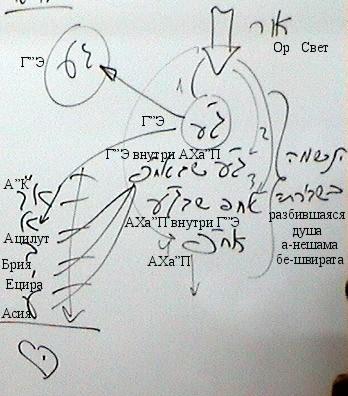 אור
Ор Свет
Г"Э
ג"ע
Г"Э
גע
1
2
Г"Э внутри АХа"П
גע שבאחפ
3
אחפ שבגע
АХа"П внутри Г"Э
אחפ
АХа"П
הנשמה
разбившаяся
душа
а-нешама
бе-швирата
А"К
א"ק
Ацилут
Брия
Ецира
Асия